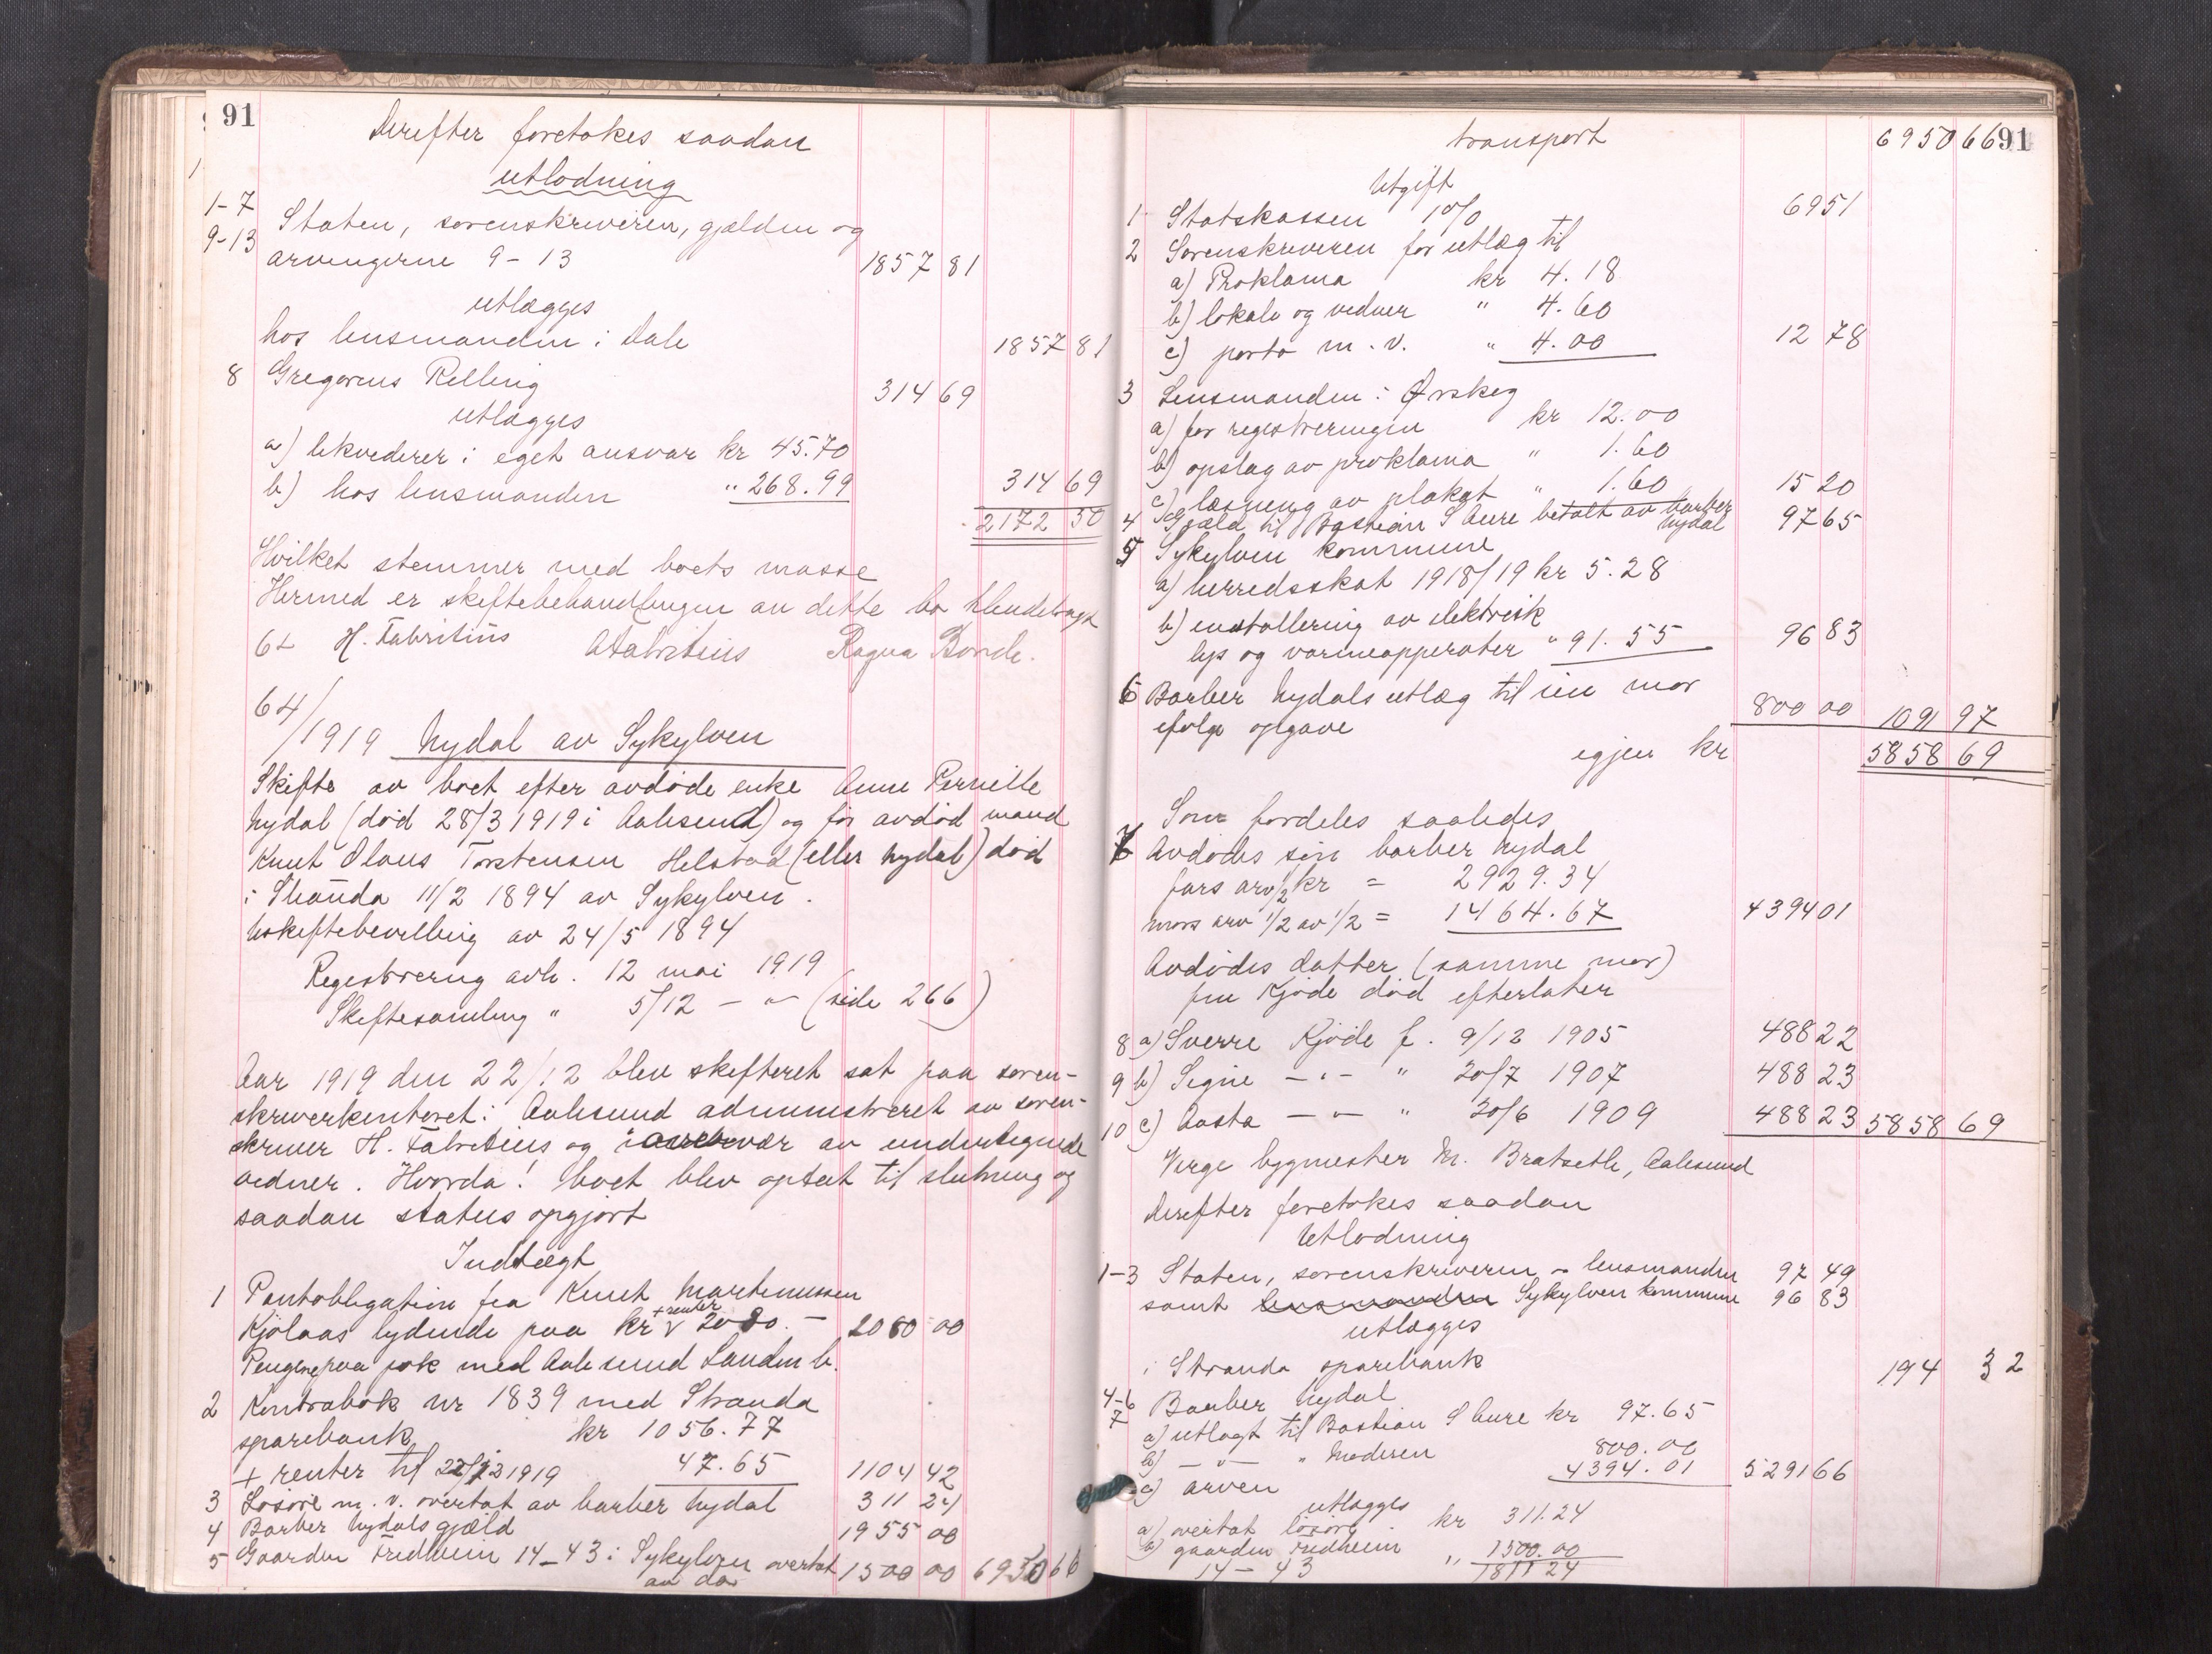 91
Derefter foretokes saadan
utlodning
1-7 Staten, sorenskriveren, gjelden og
9-13 arvingerne 9-13 1857 81
utlægges
hos lensmanden i Dale 1857 81
8 Gregorius Relling 314 69
utlægges
a) likviderer i eget ansvar kr 45.70
b) hos lensmanden " 268.99 314 69
2172 50
Hvilket stemmer med boets masse
Hermed er skiftebehandlingen av dette bo tilendebragt
H. Fabritius AFabritius Ragna Bonde.
64/1919 Nydal av Sykylven
Skifte av boet efter avdøde enke Anne Pernille
Nydal (død 28/3 1919 i Aalesund) og før avdød mand
Knut Olaus Torstensen Helstad (eller Nydal) død
i Stranda 11/2 1894 av Sykylven.
Uskiftebevilling av 24/5 1894
Registrering avh. 12 mai 1919
Skiftesamling " 5/12 - " - (side 266)
Aar 1919 den 22/12 blev skifteret sat paa soren-
skriverkontoret i Aalesund administreret av soren-
skriver H. Fabritius og i overvær av undertegnede
vidner. Hvorda! boet blev optat til slutning og
saadan status opgjort
Indtægt
1 Pantobligation fra Knut Martinussen
Kjølaas lydende paa kr + renter 2080. - 2080 00
Pengene paa bok med Aalesund Landm b.
2 Kontrabok nr 1839 med Stranda
sparebank kr 1056.77
+ renter til 22/12 1919 47.65 1104 42
3 Løsøre m.v. overtat av barber Nydal 311 24
4 Barber Nydals gjæld 1955 00
5 Gaarden Fredheim 14-43 i Sykylven overtat 1500 00 6950 66
av do
91
transport 6950 66
Utgift
1 Statskassen 1 0/0 69 51
2 Sorenskriveren for utlæg til
a) Proklama kr 4.18
b) lokale og vidner " 4.60
c) porto m.v. " 4.00 12 78
3 Lensmanden i Ørskog
a) for registreringen kr 12.00
b) opslag av proklama " 1.60
c) læsning av plakat " 1.60 15 20
4 Gjæld til Bastian S Aure betalt av barber Nydal 97 65
5 Sykylven kommune
a) herredsskat 1918/19 kr 5.28
b) installering av elektrisk
lys og varmeapperater " 91.55 96 83
6 Barber Nydals utlæg til sin mor
ifølge opgave 800 00 1091 97
igjen kr 5858 69
Som fordeles saaledes
7 Avdødes søn barber Nydal
fars arv 1/2 kr = 2929.34
mors arv 1/2 av 1/2 = 1464.67 4394 01
Avdødes datter (samme mor)
fru Kjøde død efterlater
8 a) Sverre Kjøde f. 9/12 1905 488 22
9 b) Signe - " - " 20/7 1907 488 23
10 c) Aasta - " - " 20/6 1909 488 23 5858 69
Verge bygmester M. Bratseth, Aalesund
Derefter foretokes saadan
Utlodning
1-3 Staten, sorenskriveren - lensmanden 97 49
samt lensmanden Sykylven kommune 96 83
utlægges
i Stranda sparebank 194 32
4-6
7 Barber Nydal
a) utlagt til Bastian S Aure kr 97.65
b) - " - " Moderen 800.00
c) arven 4394.01 5291 66
utlægges
a) overtat løsøre kr 311.24
b) gaarden Fredheim " 1500.00
14-43 1811 24